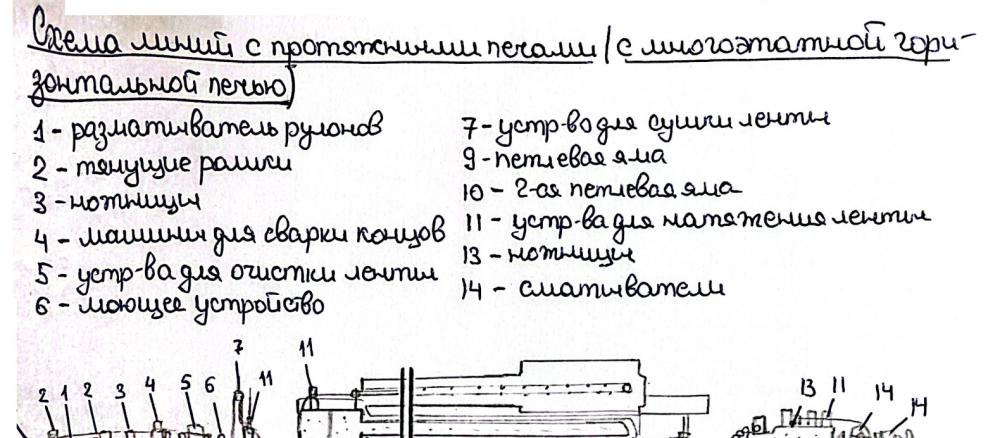 Схема линий с протяжными печами (с многоэтажной гори-
зонтальной печью)
1 - разматыватель рулонов
2 - тянущие ролики
3 - ножницы
4 - машины для сварки концов
5 - устр-ва для очистки ленты
6 - моющее устройство
7 - устр-во для сушки ленты
9 - петлевая яма
10 - 2-ая петлевая яма
11 - устр-ва для натяжения ленты
13 - ножницы
14 - сматыватели
7 11
2 1 2 3 4 5 6 11 13 11 14 14